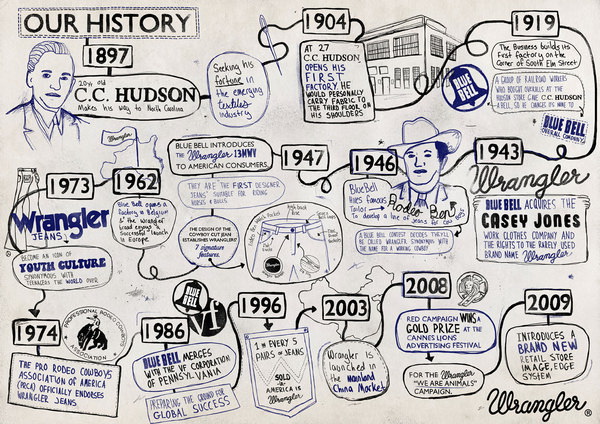 OUR HISTORY
1897
20yr old
C.C. HUDSON
Makes his way to North Carolina
Seeking his
fortune in
the emerging
textiles
industry
1904
AT 27
C.C. HUDSON
OPENS HIS
FIRST
FACTORY HE
WOULD PERSONALLY
CARRY FABRIC TO
THE THIRD FLOOR ON
HIS SHOULDERS
1919
The Business builds its
first factory on the
corner of South Elm Street
BLUE
BELL
A GROUP OF RAILROAD WORKERS
WHO BOUGHT OVERALLS AT THE
HUDSON STORE GAVE C.C. HUDSON
A BELL, SO HE CHANGES ITS NAME TO
BLUE BELL
OVERALL COMPANY
1943
Wrangler
BLUE BELL ACQUIRES THE
CASEY JONES
WORK CLOTHES COMPANY AND
THE RIGHTS TO THE RARELY USED
BRAND NAME Wrangler
1946
Blue Bell
Hires famous
Tailor
Rodeo Ben
To develop a line of jeans for cowboys
A BLUE BELL CONTEST DECIDES THEY'LL
BE CALLED WRANGLER, SYNONYMOUS WITH
THE NAME FOR A WORKING COWBOY
1947
BLUE BELL INTRODUCES
THE Wrangler 13MWV
TO AMERICAN CONSUMERS
THEY ARE THE FIRST DESIGNER
JEANS SUITABLE FOR RIDING
HORSES & BULLS
THE DESIGN OF THE
COWBOY CUT JEAN
ESTABLISHES WRANGLER'S
7 signature
features
Wrangler
1962
Blue Bell opens a
factory in Belgium
&
Successful launch
in Europe
1973
Wrangler
JEANS
BECOME AN ICON OF
YOUTH CULTURE
SYNONYMOUS WITH
TEENAGERS THE WORLD OVER
1974
THE PRO RODEO COWBOYS
ASSOCIATION OF AMERICA
(PRCA) OFFICIALLY ENDORSES
WRANGLER JEANS
PROFESSIONAL RODEO COWBOYS
ASSOCIATION
1986
BLUE BELL
vf
BLUE BELL MERGES
WITH THE VF CORPORATION
OF PENNSYLVANIA
PREPARING THE GROUND FOR
GLOBAL SUCCESS
1996
1 in EVERY 5
PAIRS OF JEANS
SOLD
in
AMERICA IS
WRANGLER
2003
Wrangler is
launched in
the mainland
China Market
2008
RED CAMPAIGN WINS A
GOLD PRIZE AT THE
CANNES LIONS
ADVERTISING FESTIVAL
FOR THE Wrangler
"WE ARE ANIMALS"
CAMPAIGN.
2009
INTRODUCES A
BRAND NEW
RETAIL STORE
IMAGE, EDGE
SYSTEM
Wrangler®